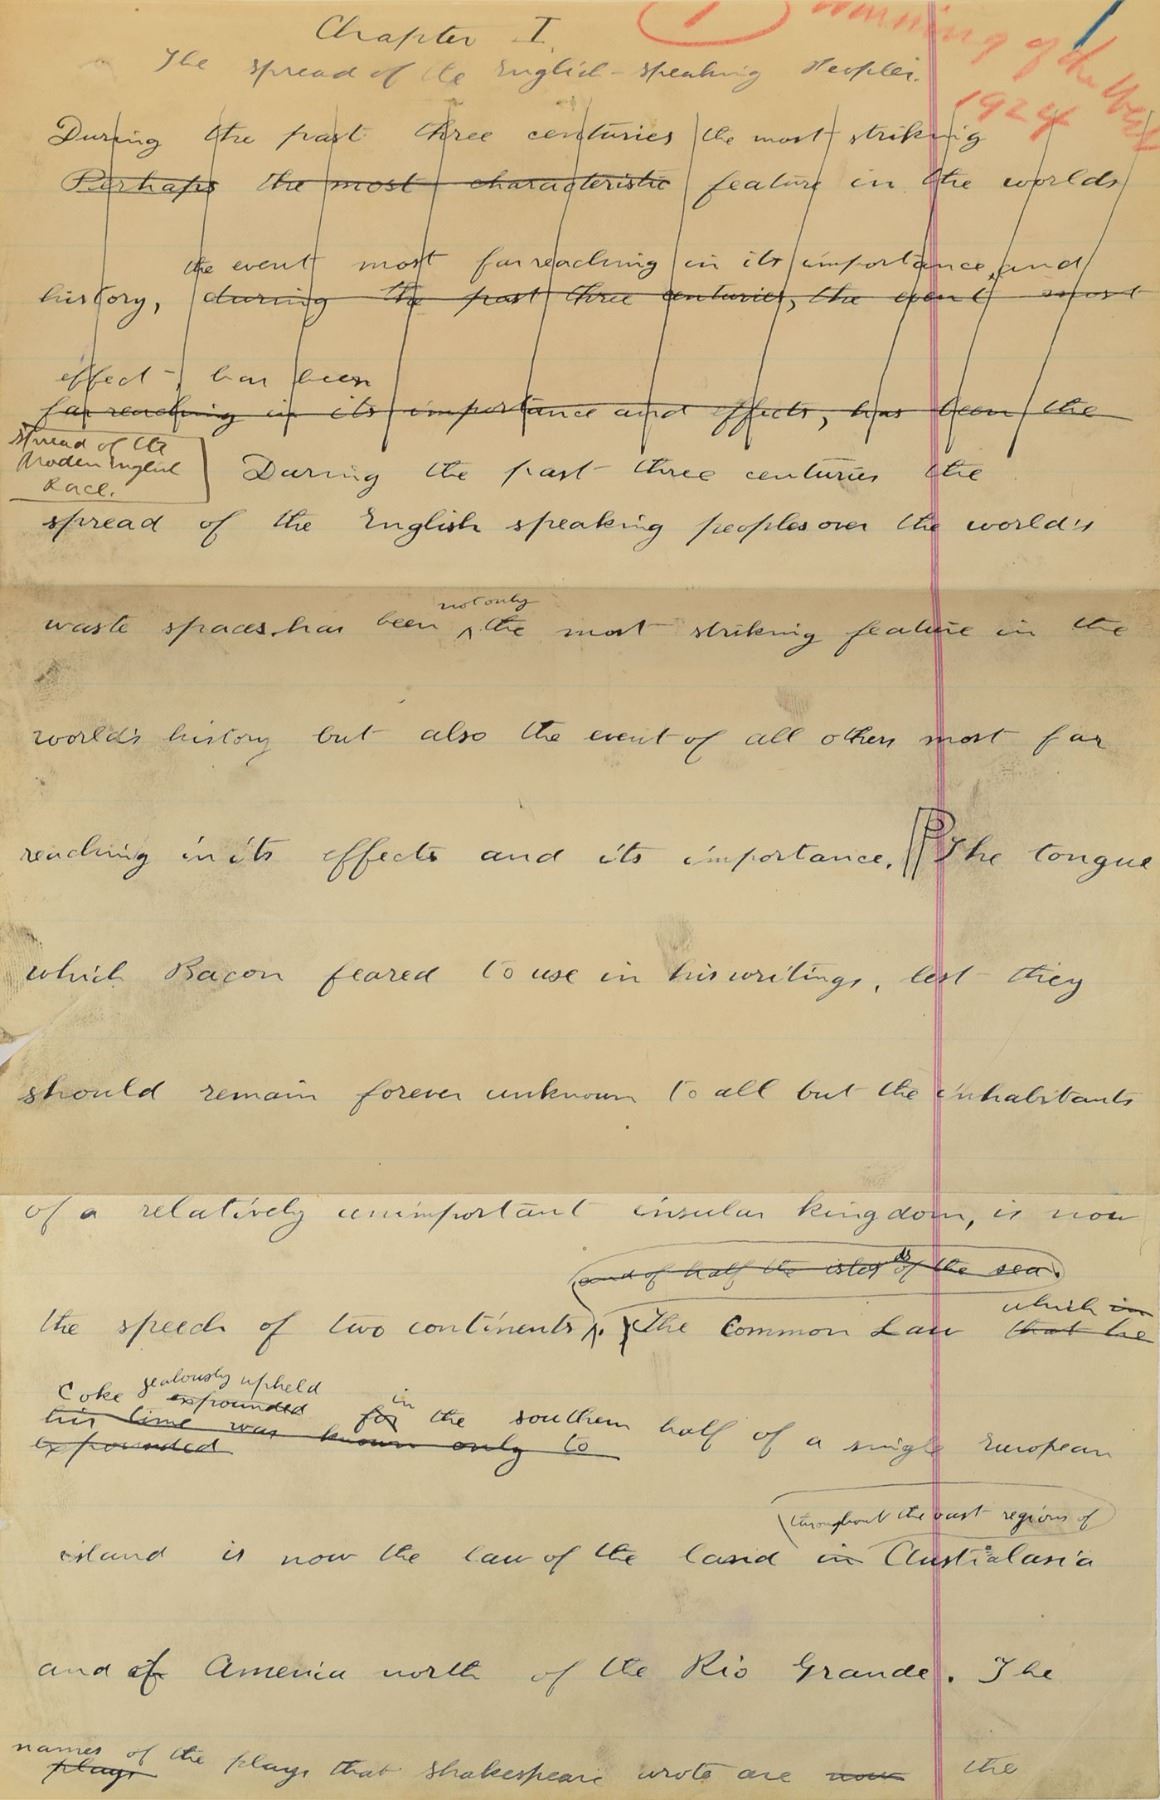 Chapter I.
1 Winning of the West
1924
The spread of the English-speaking Peoples.
During the past three centuries the most striking
Perhaps the most characteristic feature in the worlds
the event most far reaching in its importance, and
history, during the past three centuries, the event most
effect, has been
far reaching in its importance and effects, has been the
spread of the
Modern English
Race.
During the past three centuries the
spread of the English speaking peoples over the world's
not only
waste spaces has been ^ the most striking feature in the
world's history but also the event of all others most far
reaching in its effects and its importance. The tongue
which Bacon feared to use in his writings, lest they
should remain forever unknown to all but the inhabitants
of a relatively unimportant insular kingdom, is now
and of half the isles of the sea.
the speech of two continents. The Common Law that he
which in
Coke jealously upheld
expounded for in the southern half of a single European
his time was known only to
expounded
throughout the vast regions of
island is now the law of the land in Australasia
and of America north of the Rio Grande. The
names of the plays that Shakespeare wrote are now the
plays